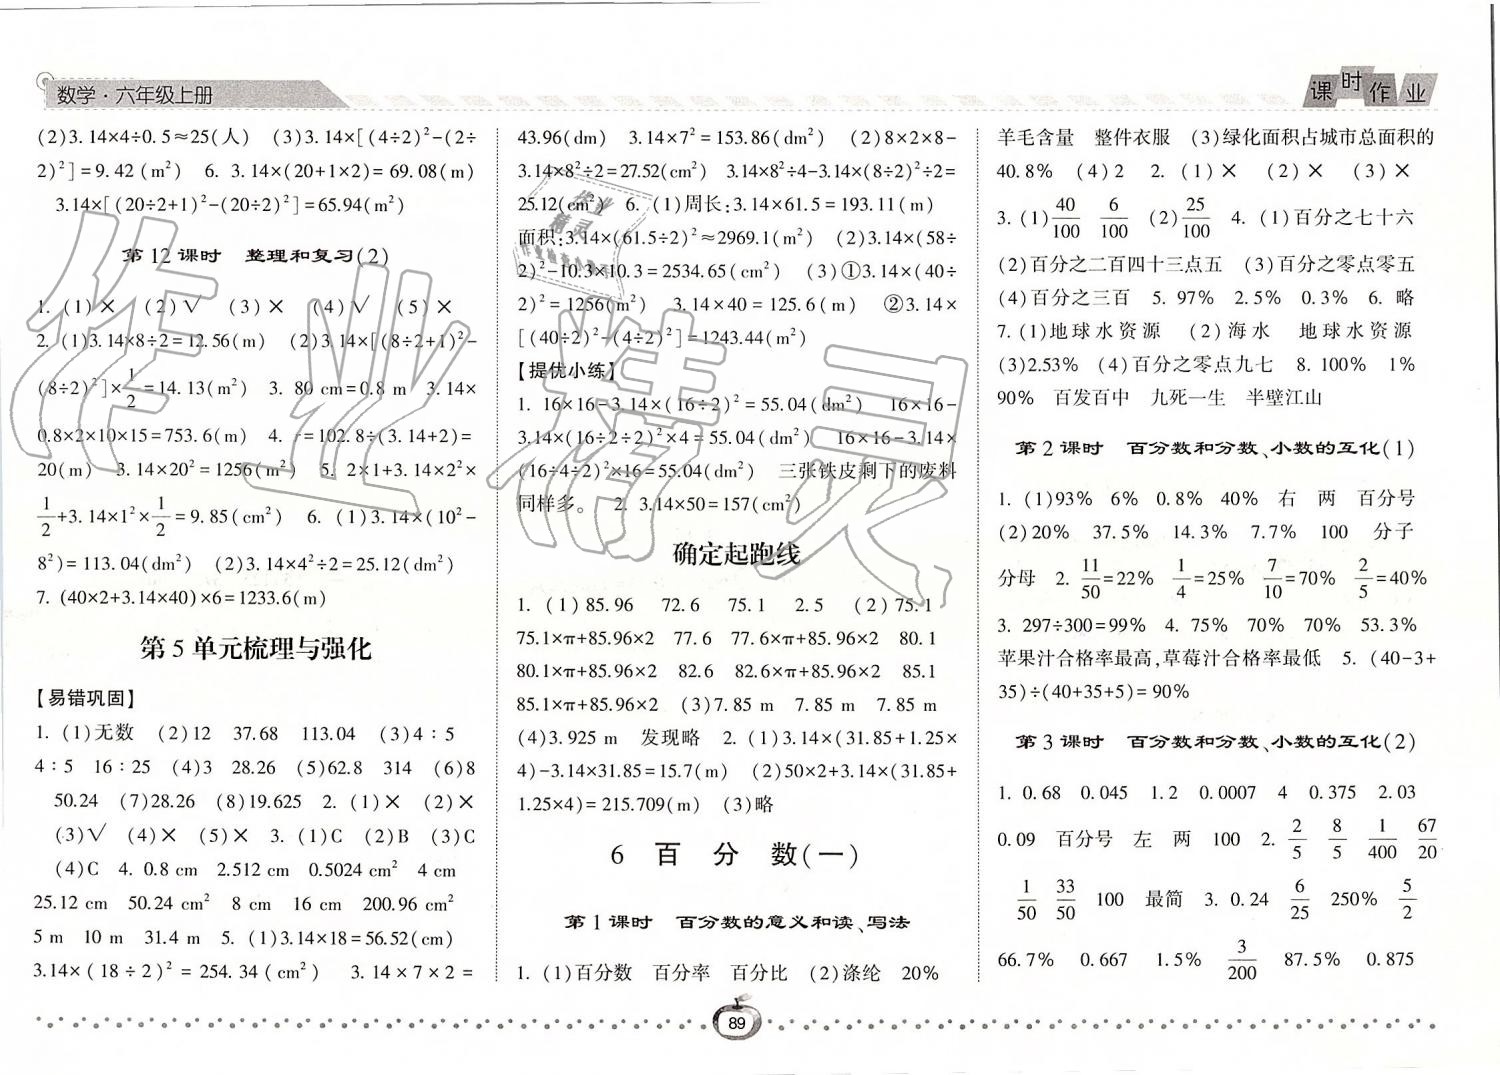 数学·六年级上册
课时作业
(2)3.14×4÷0.5≈25(人) (3)3.14×[(4÷2)²-(2÷
2)²]=9.42(m²) 6. 3.14×(20+1×2)=69.08(m)
3.14×[(20÷2+1)²-(20÷2)²]=65.94(m²)
第12课时 整理和复习(2)
1. (1)× (2)√ (3)× (4)√ (5)×
2. (1)3.14×8÷2=12.56(m) (2)3.14×[(8÷2+1)²-
(8÷2)²]×1/2=14.13(m²) 3. 80 cm=0.8 m 3.14×
0.8×2×10×15=753.6(m) 4. r=102.8÷(3.14+2)=
20(m) 3.14×20²=1256(m²) 5. 2×1+3.14×2²×
1/2+3.14×1²×1/2=9.85(cm²) 6. (1)3.14×(10²-
8²)=113.04(dm²) (2)3.14×4²÷2=25.12(dm²)
7. (40×2+3.14×40)×6=1233.6(m)
第5单元梳理与强化
【易错巩固】
1. (1)无数 (2)12 37.68 113.04 (3)4∶5
4∶5 16∶25 (4)3 28.26 (5)62.8 314 (6)8
50.24 (7)28.26 (8)19.625 2. (1)× (2)×
(3)√ (4)× (5)× 3. (1)C (2)B (3)C
(4)C 4. 0.8 cm 2.512 cm 0.5024 cm² 4 cm
25.12 cm 50.24 cm² 8 cm 16 cm 200.96 cm²
5 m 10 m 31.4 m 5. (1)3.14×18=56.52(cm)
3.14×(18÷2)²=254.34(cm²) 3.14×7×2=
43.96(dm) 3.14×7²=153.86(dm²) (2)8×2×8-
3.14×8²÷2=27.52(cm²) 3.14×8²÷4-3.14×(8÷2)²÷2=
25.12(cm²) 6. (1)周长:3.14×61.5=193.11(m)
面积:3.14×(61.5÷2)²≈2969.1(m²) (2)3.14×(58÷
2)²-10.3×10.3=2534.65(cm²) (3)①3.14×(40÷
2)²=1256(m²) 3.14×40=125.6(m) ②3.14×
[(40÷2)²-(4÷2)²]=1243.44(m²)
【提优小练】
1. 16×16-3.14×(16÷2)²=55.04(dm²) 16×16-
3.14×(16÷2÷2)²×4=55.04(dm²) 16×16-3.14×
(16÷4÷2)²×16=55.04(dm²) 三张铁皮剩下的废料
同样多。 2. 3.14×50=157(cm²)
确定起跑线
1. (1)85.96 72.6 75.1 2.5 (2)75.1
75.1×π+85.96×2 77.6 77.6×π+85.96×2 80.1
80.1×π+85.96×2 82.6 82.6×π+85.96×2 85.1
85.1×π+85.96×2 (3)7.85 m 7.85 m 7.85 m
(4)3.925 m 发现略 2. (1)3.14×(31.85+1.25×
4)-3.14×31.85=15.7(m) (2)50×2+3.14×(31.85+
1.25×4)=215.709(m) (3)略
6 百分数(一)
第1课时 百分数的意义和读、写法
1. (1)百分数 百分率 百分比 (2)涤纶 20%
羊毛含量 整件衣服 (3)绿化面积占城市总面积的
40.8% (4)2 2. (1)× (2)× (3)×
3. (1)40/100 6/100 (2)25/100 4. (1)百分之七十六
(2)百分之二百四十三点五 (3)百分之零点零五
(4)百分之三百 5. 97% 2.5% 0.3% 6. 略
7. (1)地球水资源 (2)海水 地球水资源
(3)2.53% (4)百分之零点九七 8. 100% 1%
90% 百发百中 九死一生 半壁江山
第2课时 百分数和分数、小数的互化(1)
1. (1)93% 6% 0.8% 40% 右 两 百分号
(2)20% 37.5% 14.3% 7.7% 100 分子
分母 2. 11/50=22% 1/4=25% 7/10=70% 2/5=40%
3. 297÷300=99% 4. 75% 70% 70% 53.3%
苹果汁合格率最高,草莓汁合格率最低 5. (40-3+
35)÷(40+35+5)=90%
第3课时 百分数和分数、小数的互化(2)
1. 0.68 0.045 1.2 0.0007 4 0.375 2.03
0.09 百分号 左 两 100 2. 2/5 8/5 1/400 67/20
1/50 33/50 100 最简 3. 0.24 6/25 250% 5/2
66.7% 0.667 1.5% 3/200 87.5% 0.875
89
作业精灵